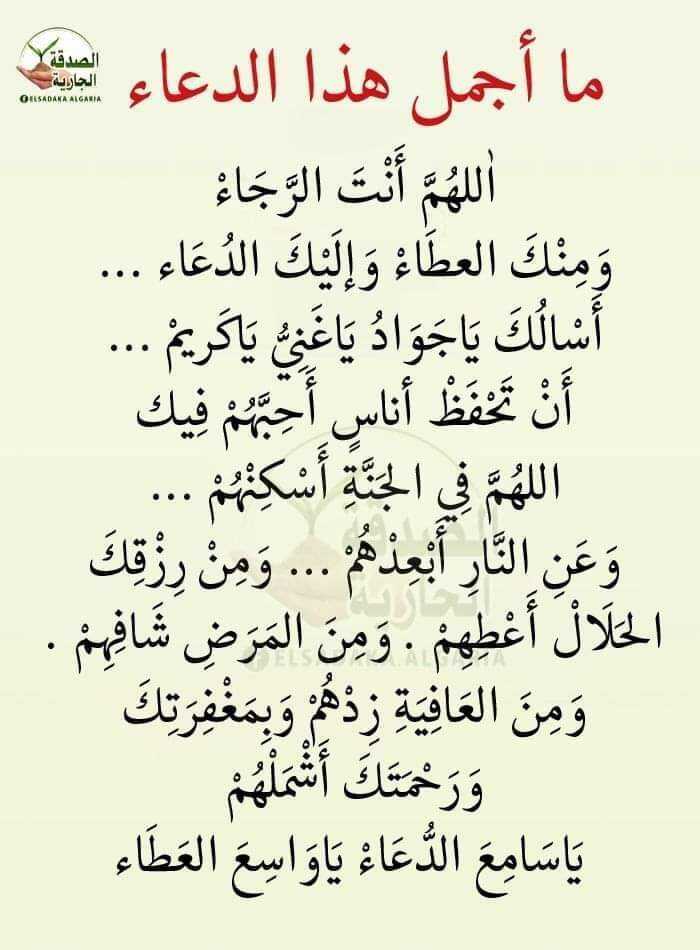 الصدقة
الجارية
ELSADAKA ALGARIA
ما أجمل هذا الدعاء
اٰللهُمَّ أَنْتَ الرَّجَاءْ
وَمِنْكَ العطَاءْ وَإلَيْكَ الدُعَاء ...
أَسْالُكَ يَاجَوَادُ يَاغَنِيُّ يَاكَريمْ ...
أَنْ تَحْفَظْ أناسٍ أَحِبَّهُمْ فِيك
اللهُمَّ فِي الجَنَّةِ أَسْكِنْهُمْ ...
وَعَنِ النَّارِ أَبْعِدْهُمْ ... وَمِنْ رِزْقِكَ
الحَلَالْ أَعْطِهِمْ . وَمِنَ المَرَضِ شَافِهِمْ .
وَمِنَ العَافِيَةِ زِدْهُمْ وَبِمَغْفِرَتِكَ
وَرَحْمَتَكَ أَشْمَلْهُمْ
يَاسَامِعَ الدُّعَاءْ يَاوَاسِعَ العَطَاء
الصدقة
الجارية
ELSADAKA ALGARIA